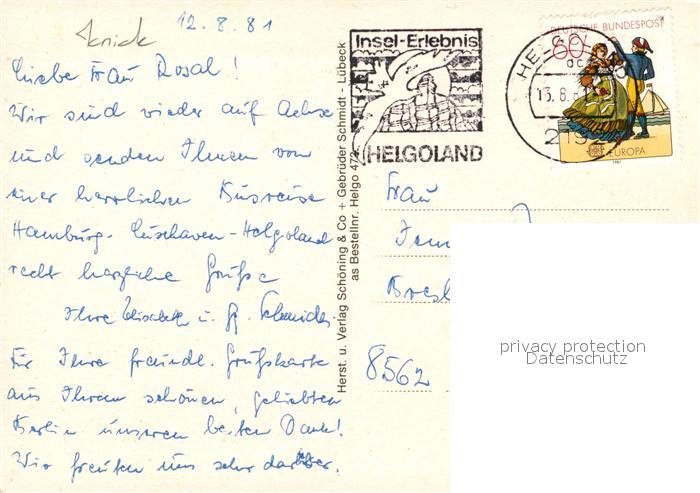 12.8.81
Liebe Frau Rosal!
Wir sind wieder auf Achse
und senden Ihnen von
einer herrlichen Busreise
Hamburg-Cuxhaven-Helgoland
recht herzliche Grüße
Ihre Elisabeth u.
Für Ihre freundl. Grußkarte
aus Ihrem schönen, geliebten
Berlin unseren besten Dank!
Wir freuten uns sehr darüber.
Herst. u. Verlag Schöning & Co + Gebrüder Schmidt - Lübeck
as Bestellnr. Helgo 472
Insel-Erlebnis
HELGOLAND
HELGO
13.8.
2192
DEUTSCHE BUNDESPOST
60
EUROPA
1981
Frau
8562
privacy protection
Datenschutz